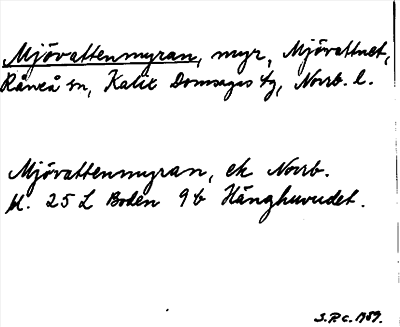 Mjövattenmyran, myr, Mjövattnet,
Råneå sn, Kalix Domsagas tg, Norrb. l.
Mjövattenmyran, ek Norrb.
bl. 25 L Boden 9 b Hänghuvudet.
S.P.C. 1959.